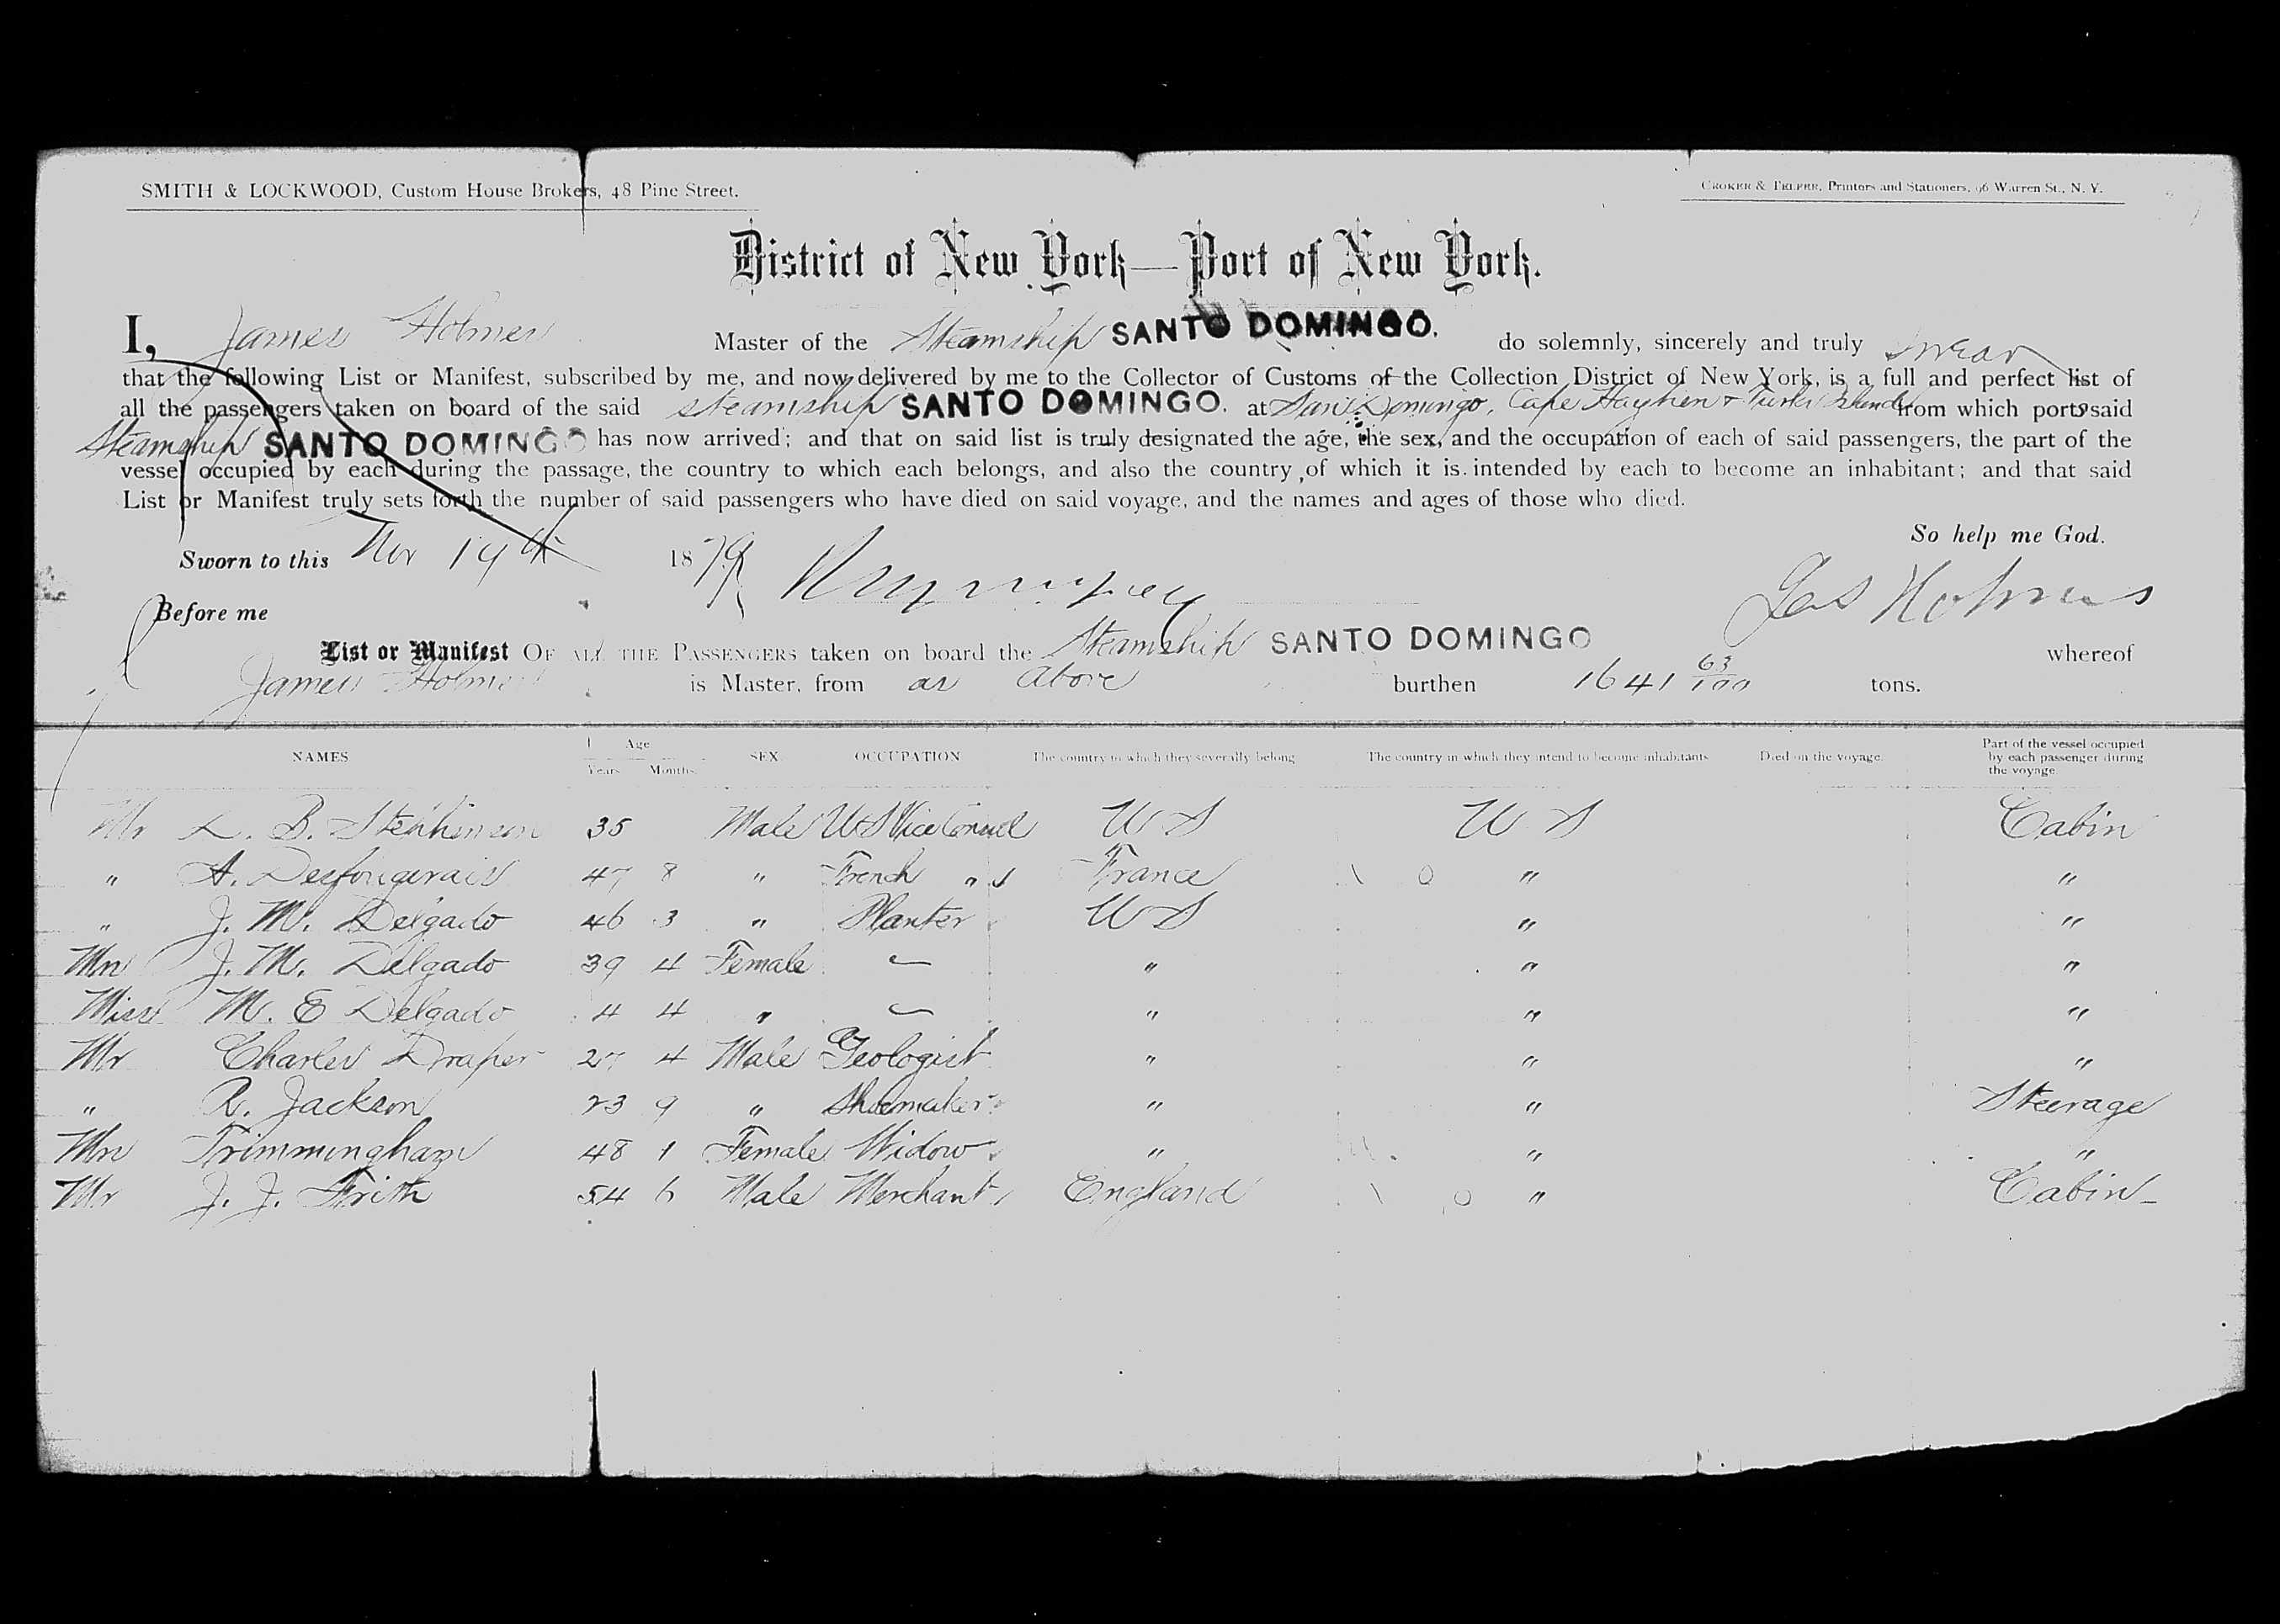 SMITH & LOCKWOOD, Custom House Brokers, 48 Pine Street.
CROKER & TELFER, Printers and Stationers, 96 Warren St., N. Y.
District of New York—Port of New York.
I, James Holmes Master of the Steamship SANTO DOMINGO. do solemnly, sincerely and truly swear
that the following List or Manifest, subscribed by me, and now delivered by me to the Collector of Customs of the Collection District of New York, is a full and perfect list of
all the passengers taken on board of the said steamship SANTO DOMINGO. at San Domingo, Cape Hayhen & Turks Islands from which ports said
Steamship SANTO DOMINGO has now arrived; and that on said list is truly designated the age, the sex, and the occupation of each of said passengers, the part of the
vessel occupied by each during the passage, the country to which each belongs, and also the country of which it is intended by each to become an inhabitant; and that said
List or Manifest truly sets forth the number of said passengers who have died on said voyage, and the names and ages of those who died.
So help me God.
Sworn to this Nov 19th 1879
Jas Holmes
Before me
List or Manifest OF ALL THE PASSENGERS taken on board the Steamship SANTO DOMINGO whereof
James Holmes is Master, from as above burthen 1641 63/100 tons.
NAMES Age Years Months SEX OCCUPATION The country to which they severally belong The country in which they intend to become inhabitants Died on the voyage. Part of the vessel occupied by each passenger during the voyage.
Mr L. B. Stephenson 35 Male US Vice Consul U S U S Cabin
" A. Desfougerais 47 8 " French " France " "
" J. M. Delgado 46 3 " Planter U S " "
Mrs J. M. Delgado 39 4 Female — " " "
Miss M. E Delgado 4 4 " — " " "
Mr Charles Draper 27 4 Male Geologist " " "
" R. Jackson 23 9 " Shoemaker " " Steerage
Mrs Trimmingham 48 1 Female Widow " " "
Mr J. J. Frith 54 6 Male Merchant England " Cabin